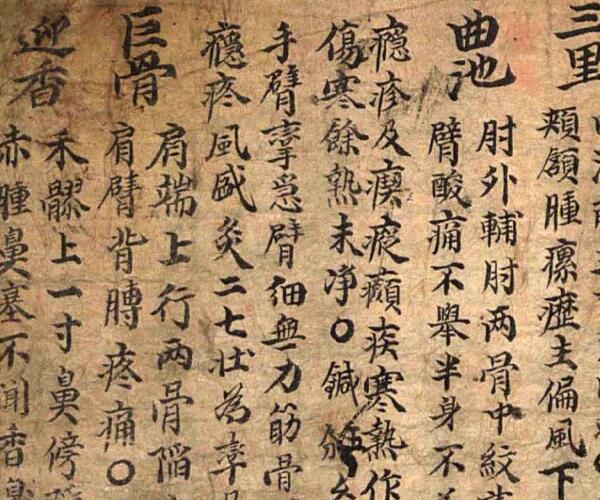 三里
頰頷腫瘰癧主偏風下
曲池
肘外輔肘两骨中紋
臂酸痛不舉半身不
癮疹及瘈疭癲疾寒熱作
傷寒餘熱未净〇鍼
手臂攣急臂细無力筋骨
癮疼風盛灸二七壮為
巨骨
肩端上行两骨陷
肩臂背膊疼痛〇
迎香
禾髎上一寸鼻傍
赤腫鼻塞不聞香